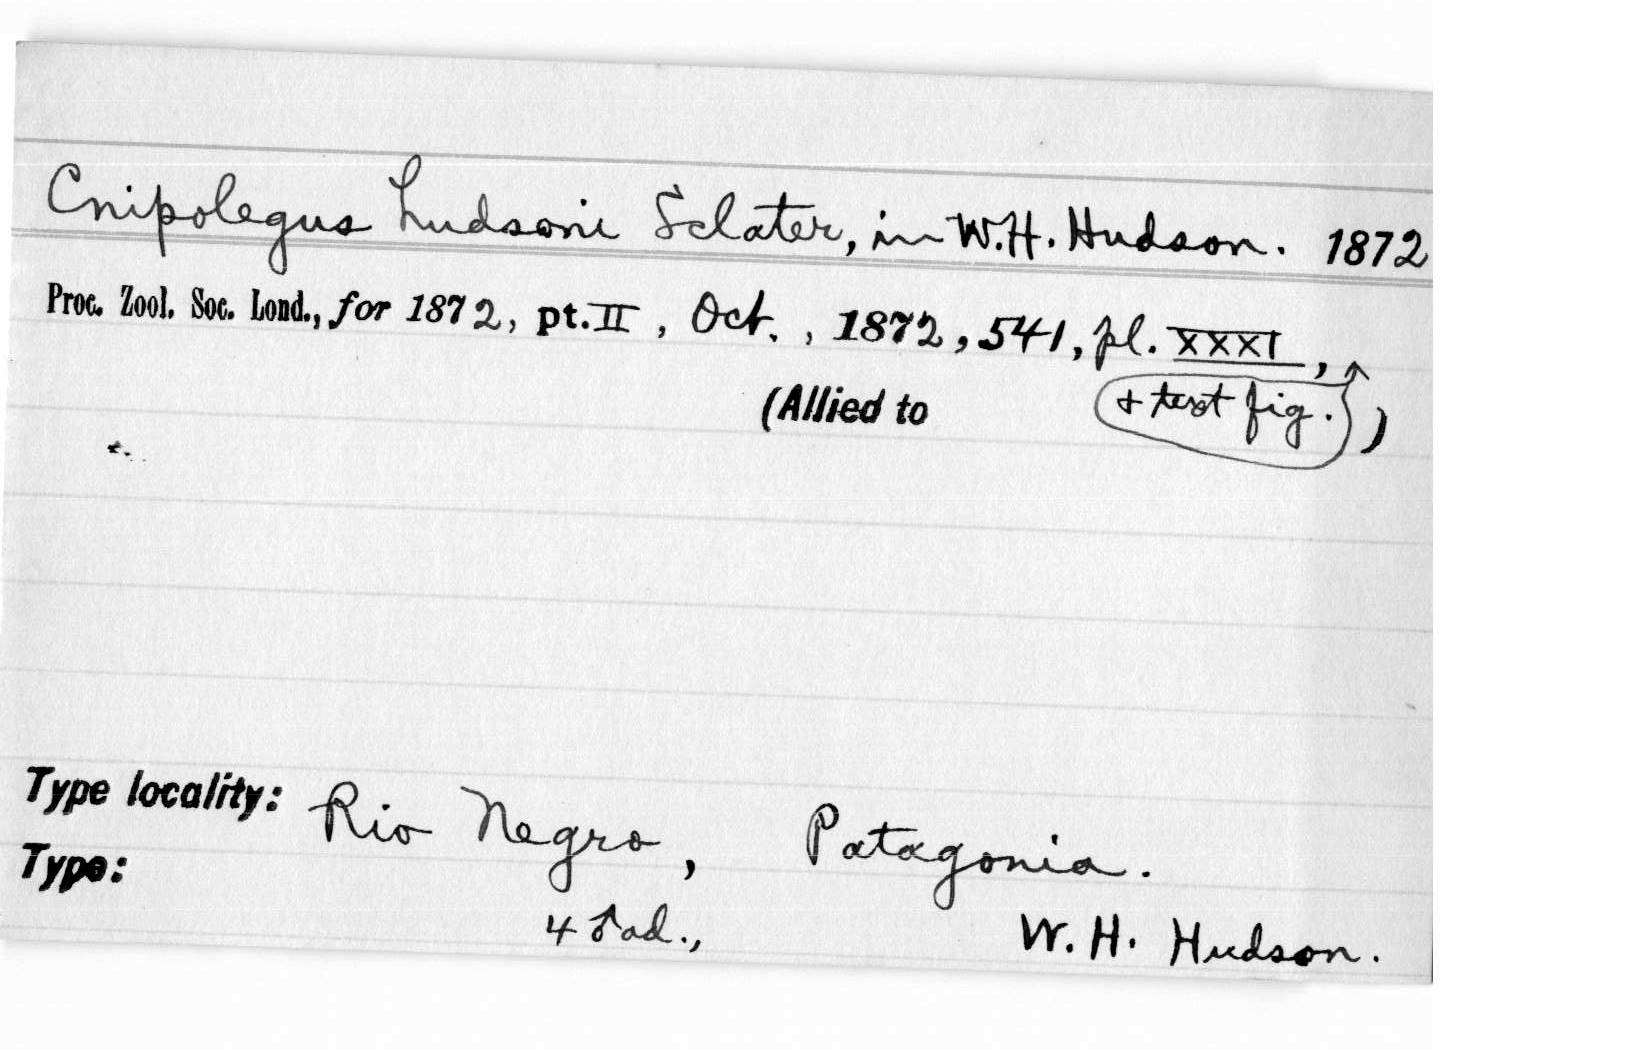 Cnipolegus hudsoni Sclater, in W.H. Hudson. 1872
Proc. Zool. Soc. Lond., for 1872, pt. II, Oct., 1872, 541, pl. XXXI,
(Allied to + text fig.)
Type locality: Rio Negro, Patagonia.
Type:
4 ♂ ad., W. H. Hudson.